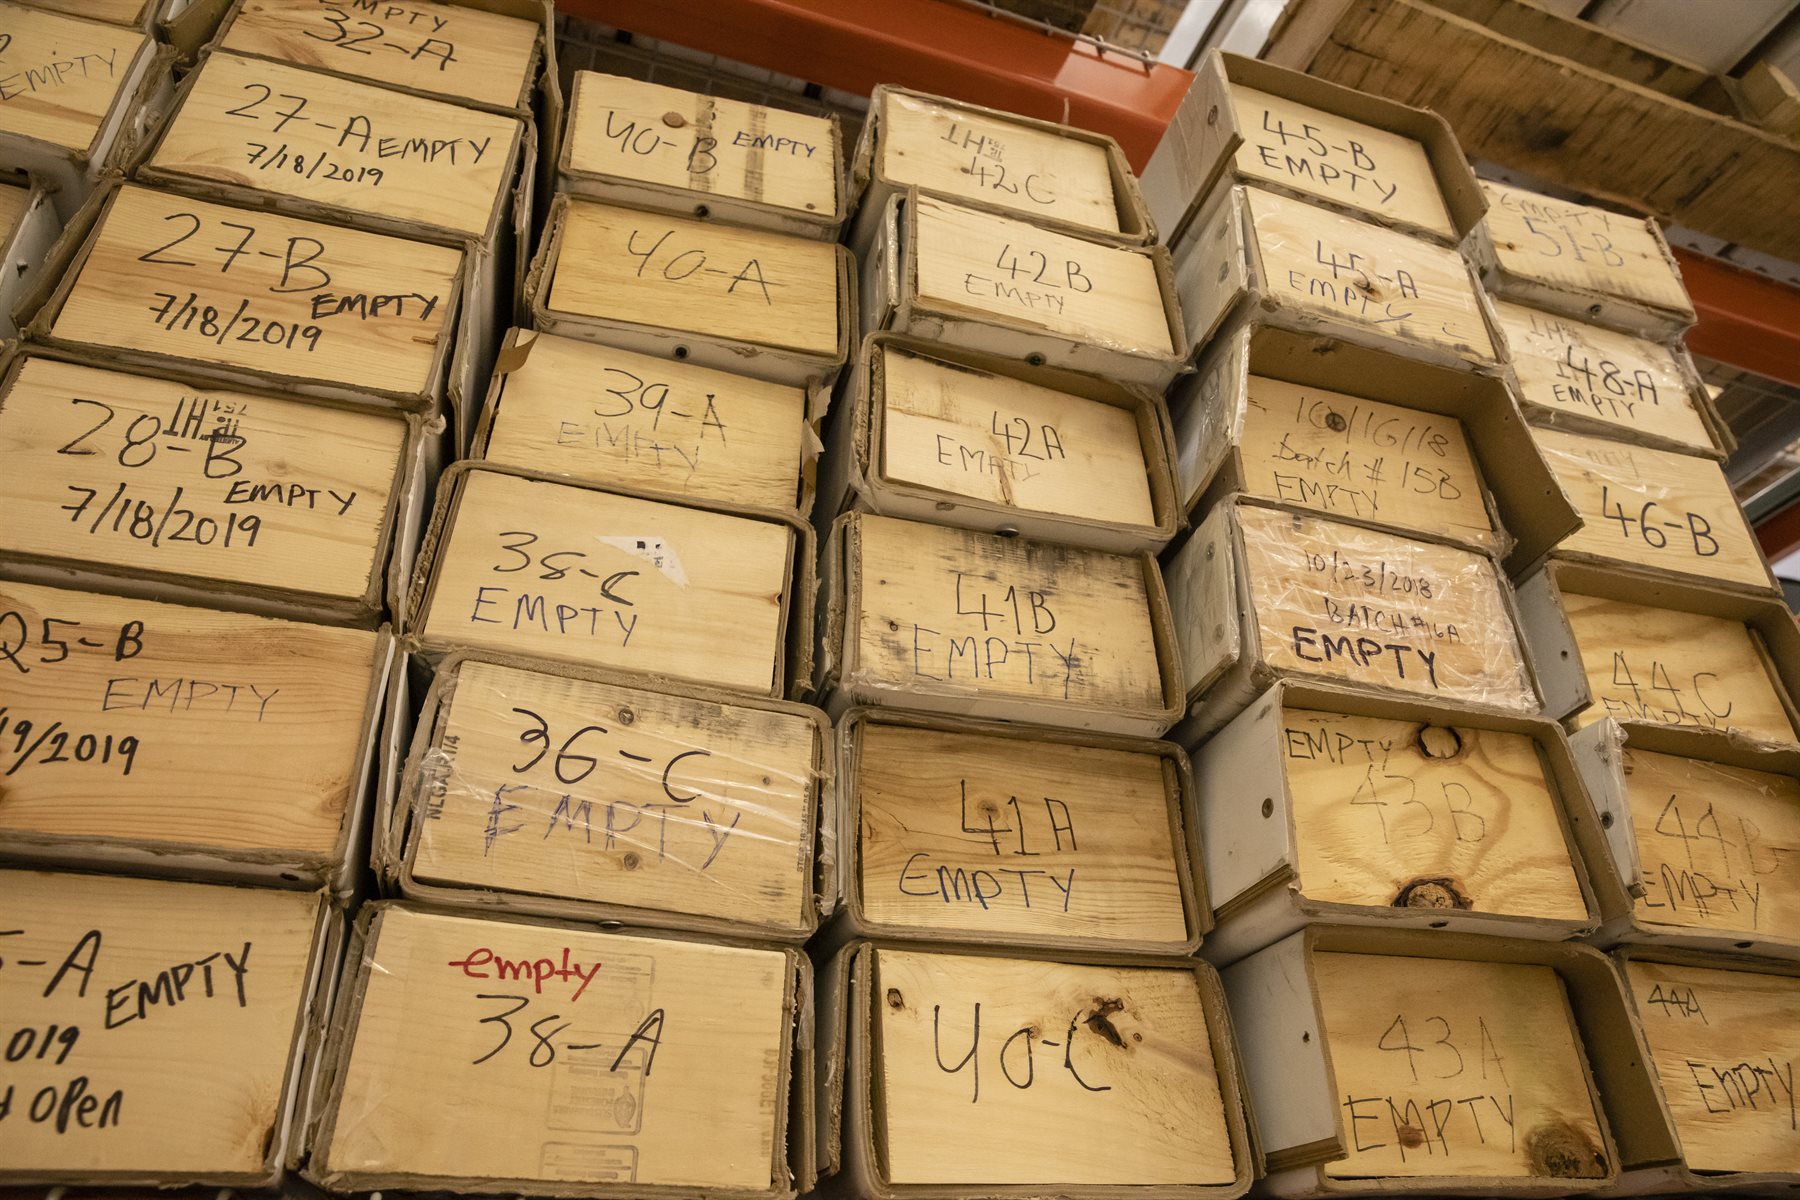 EMPTY
EMPTY
32-A
27-A EMPTY
7/18/2019
27-B EMPTY
7/18/2019
28-B HT
EMPTY
7/18/2019
25-B
EMPTY
/19/2019
-A EMPTY
019
Open
40-B EMPTY
40-A
39-A
EMPTY
38-C
EMPTY
36-C
EMPTY
empty
38-A
HT
42C
42B
EMPTY
42A
EMPTY
41B
EMPTY
41A
EMPTY
40-C
45-B
EMPTY
45-A
EMPTY
10/16/18
Batch # 15B
EMPTY
10/23/2018
BATCH #16A
EMPTY
EMPTY
43B
43A
EMPTY
EMPTY
51-B
HT
48-A
EMPTY
EMPTY
46-B
44C
EMPTY
44B
EMPTY
44A
EMPTY